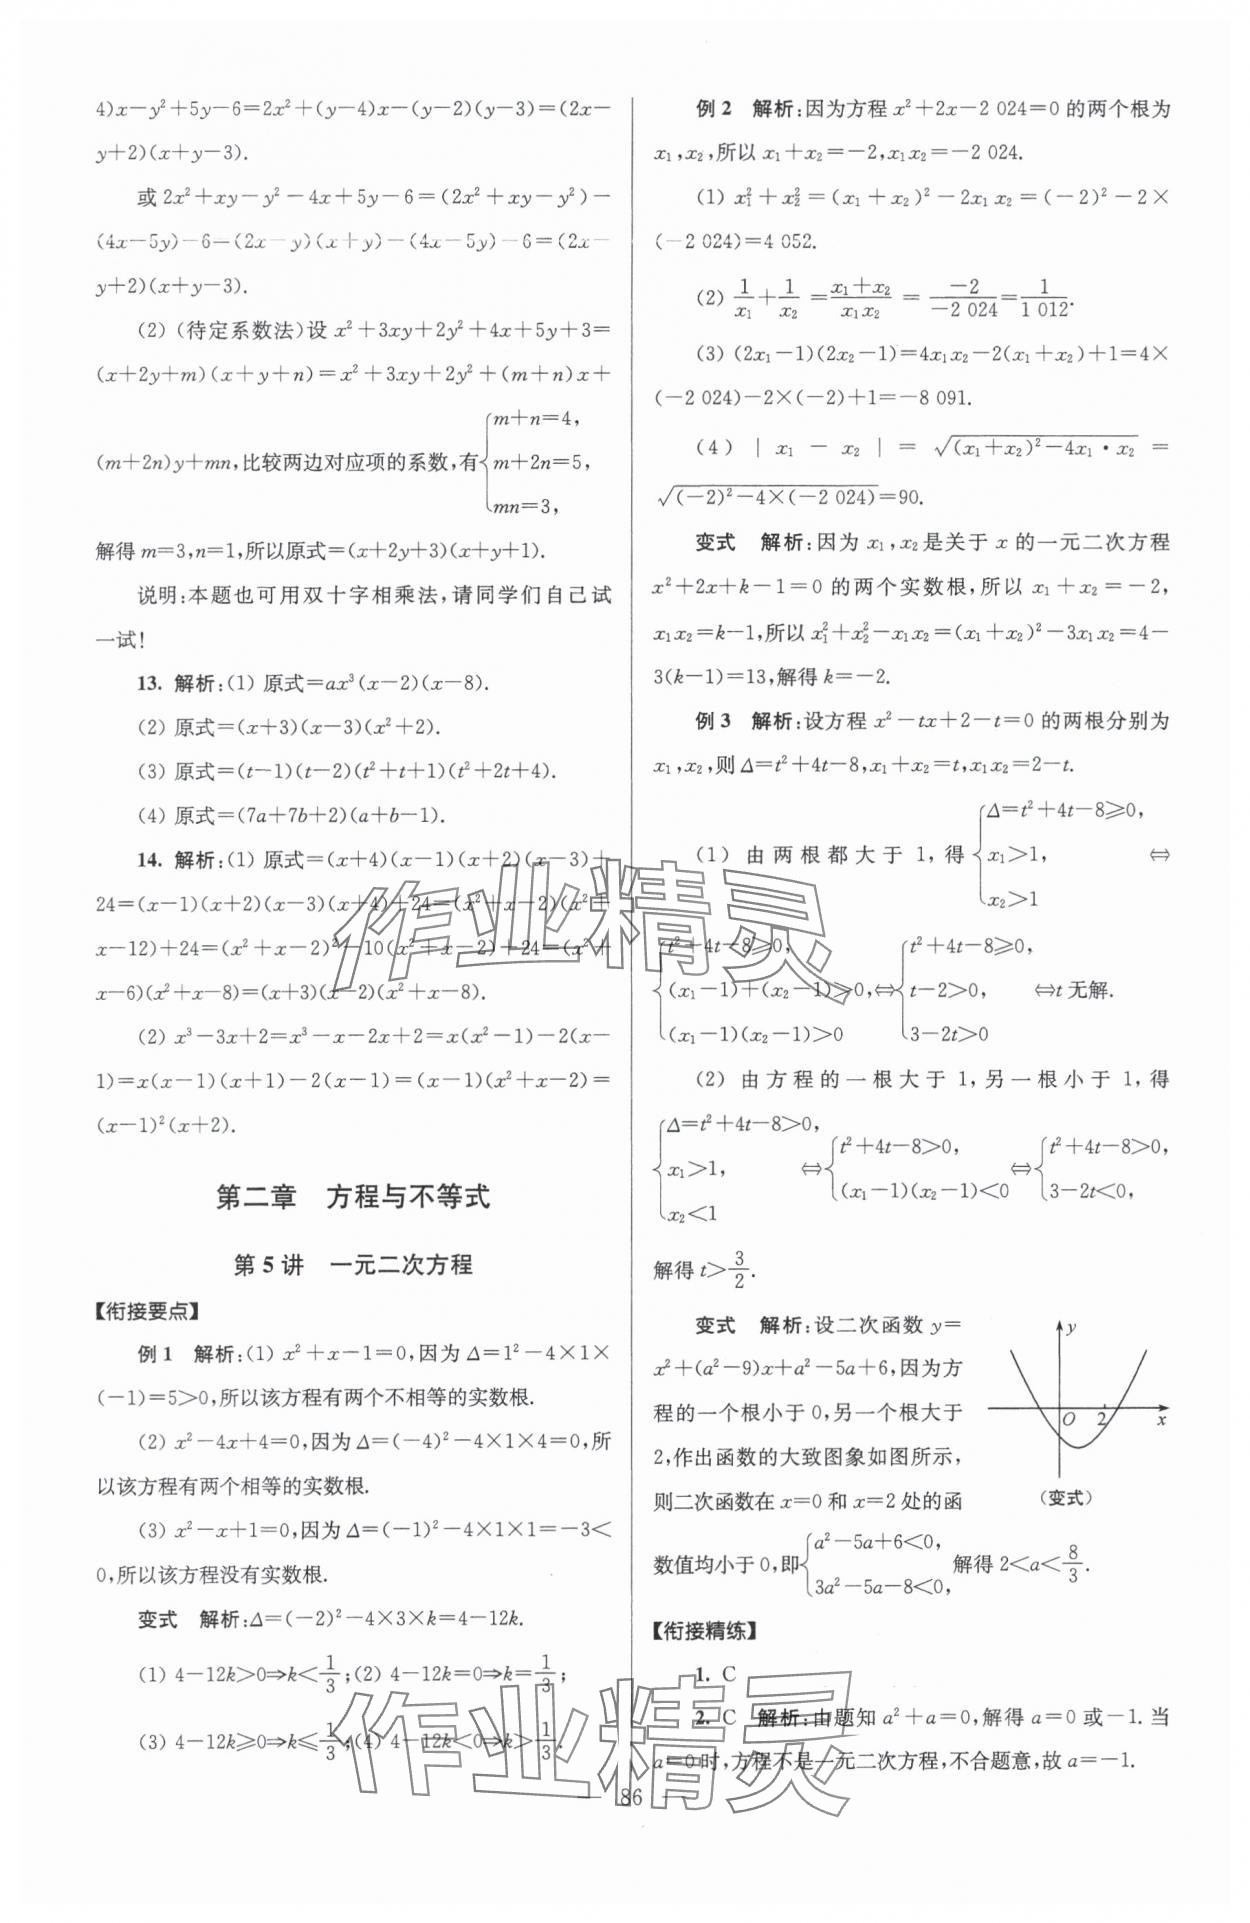 4)x－y²＋5y－6＝2x²＋(y－4)x－(y－2)(y－3)＝(2x－
y＋2)(x＋y－3).
或 2x²＋xy－y²－4x＋5y－6＝(2x²＋xy－y²)－
(4x－5y)－6＝(2x－y)(x＋y)－(4x－5y)－6＝(2x－
y＋2)(x＋y－3).
(2) (待定系数法)设 x²＋3xy＋2y²＋4x＋5y＋3＝
(x＋2y＋m)(x＋y＋n)＝x²＋3xy＋2y²＋(m＋n)x＋
(m＋2n)y＋mn,比较两边对应项的系数,有{m＋n＝4, m＋2n＝5, mn＝3,
解得 m＝3,n＝1,所以原式＝(x＋2y＋3)(x＋y＋1).
说明:本题也可用双十字相乘法,请同学们自己试
一试!
13. 解析:(1) 原式＝ax³(x－2)(x－8).
(2) 原式＝(x＋3)(x－3)(x²＋2).
(3) 原式＝(t－1)(t－2)(t²＋t＋1)(t²＋2t＋4).
(4) 原式＝(7a＋7b＋2)(a＋b－1).
14. 解析:(1) 原式＝(x＋4)(x－1)(x＋2)(x－3)＋
24＝(x－1)(x＋2)(x－3)(x＋4)＋24＝(x²＋x－2)(x²＋
x－12)＋24＝(x²＋x－2)²－10(x²＋x－2)＋24＝(x²＋
x－6)(x²＋x－8)＝(x＋3)(x－2)(x²＋x－8).
(2) x³－3x＋2＝x³－x－2x＋2＝x(x²－1)－2(x－
1)＝x(x－1)(x＋1)－2(x－1)＝(x－1)(x²＋x－2)＝
(x－1)²(x＋2).
第二章 方程与不等式
第 5 讲 一元二次方程
【衔接要点】
例 1 解析:(1) x²＋x－1＝0,因为 Δ＝1²－4×1×
(－1)＝5＞0,所以该方程有两个不相等的实数根.
(2) x²－4x＋4＝0,因为 Δ＝(－4)²－4×1×4＝0,所
以该方程有两个相等的实数根.
(3) x²－x＋1＝0,因为 Δ＝(－1)²－4×1×1＝－3＜
0,所以该方程没有实数根.
变式 解析:Δ＝(－2)²－4×3×k＝4－12k.
(1) 4－12k＞0⇒k＜1/3;(2) 4－12k＝0⇒k＝1/3;
(3) 4－12k≥0⇒k≤1/3;(4) 4－12k＜0⇒k＞1/3.
例 2 解析:因为方程 x²＋2x－2 024＝0 的两个根为
x₁,x₂,所以 x₁＋x₂＝－2,x₁x₂＝－2 024.
(1) x₁²＋x₂²＝(x₁＋x₂)²－2x₁x₂＝(－2)²－2×
(－2 024)＝4 052.
(2) 1/x₁＋1/x₂＝(x₁＋x₂)/(x₁x₂)＝－2/－2 024＝1/1 012.
(3) (2x₁－1)(2x₂－1)＝4x₁x₂－2(x₁＋x₂)＋1＝4×
(－2 024)－2×(－2)＋1＝－8 091.
(4) |x₁－x₂|＝√((x₁＋x₂)²－4x₁·x₂)＝
√((－2)²－4×(－2 024))＝90.
变式 解析:因为 x₁,x₂是关于 x 的一元二次方程
x²＋2x＋k－1＝0 的两个实数根,所以 x₁＋x₂＝－2,
x₁x₂＝k－1,所以 x₁²＋x₂²－x₁x₂＝(x₁＋x₂)²－3x₁x₂＝4－
3(k－1)＝13,解得 k＝－2.
例 3 解析:设方程 x²－tx＋2－t＝0 的两根分别为
x₁,x₂,则 Δ＝t²＋4t－8,x₁＋x₂＝t,x₁x₂＝2－t.
(1) 由两根都大于 1,得{Δ＝t²＋4t－8≥0, x₁＞1, x₂＞1 ⇔
{t²＋4t－8≥0, (x₁－1)＋(x₂－1)＞0, (x₁－1)(x₂－1)＞0 ⇔{t²＋4t－8≥0, t－2＞0, 3－2t＞0 ⇔t 无解.
(2) 由方程的一根大于 1,另一根小于 1,得
{Δ＝t²＋4t－8＞0, x₁＞1, x₂＜1 ⇔{t²＋4t－8＞0, (x₁－1)(x₂－1)＜0 ⇔{t²＋4t－8＞0, 3－2t＜0,
解得 t＞3/2.
变式 解析:设二次函数 y＝
x²＋(a²－9)x＋a²－5a＋6,因为方
程的一个根小于 0,另一个根大于
2,作出函数的大致图象如图所示,
则二次函数在 x＝0 和 x＝2 处的函
数值均小于 0,即{a²－5a＋6＜0, 3a²－5a－8＜0, 解得 2＜a＜8/3.
y
O 2 x
(变式)
【衔接精练】
1. C
2. C 解析:由题知 a²＋a＝0,解得 a＝0 或－1. 当
a＝0时,方程不是一元二次方程,不合题意,故 a＝－1.
— 86 —
作业精灵
作业精灵